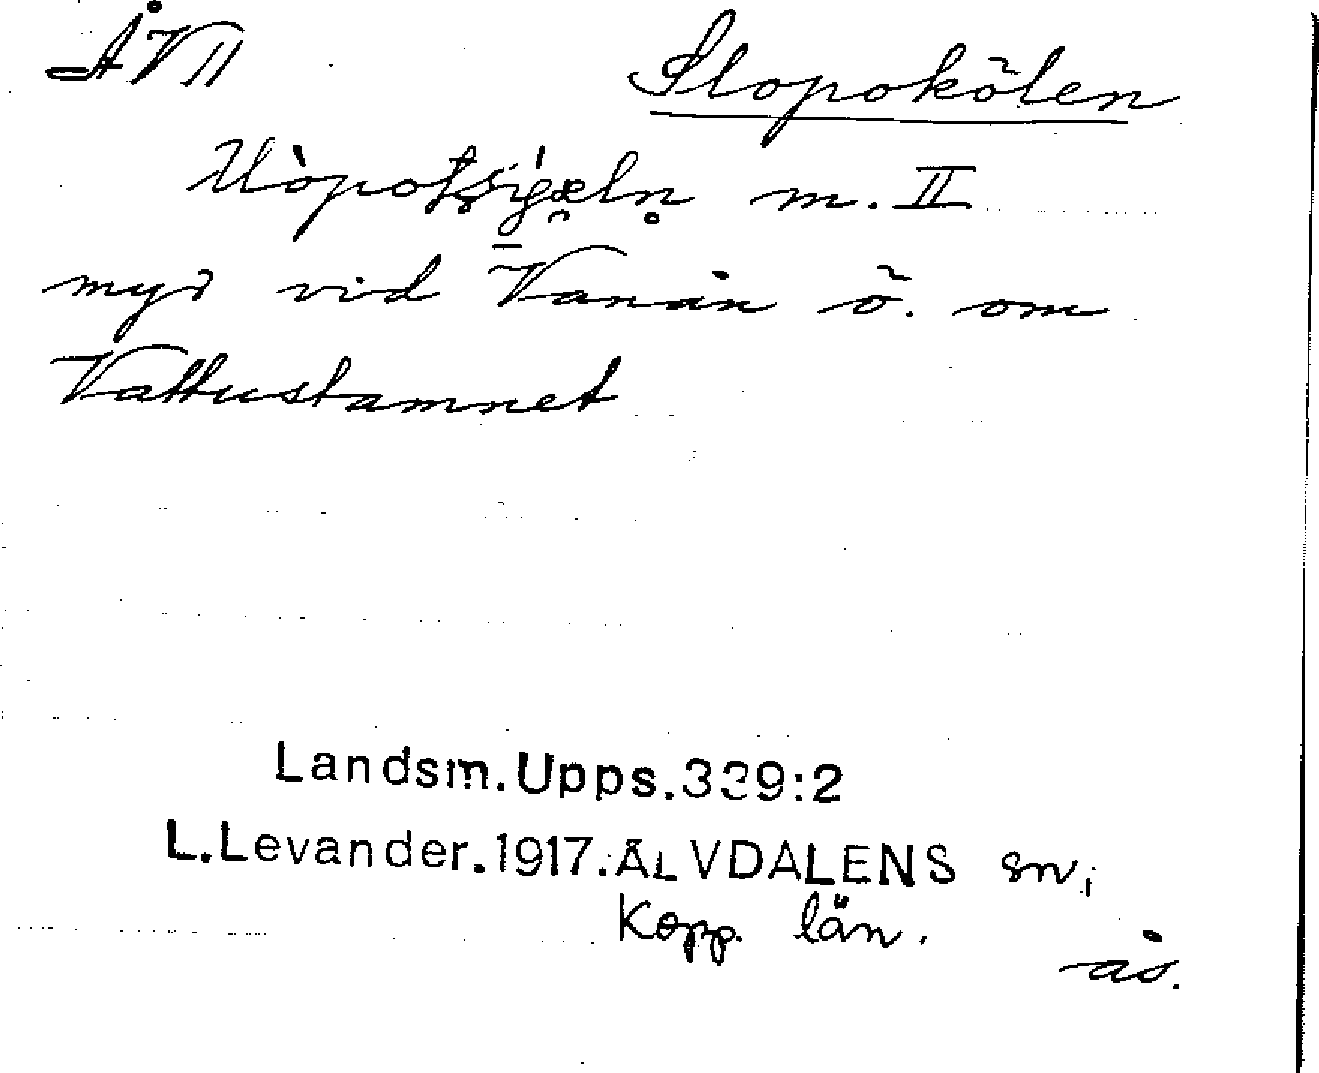 ÅVII
Slopokölen
m. II
myr vid Vanån ö. om
Vattustamnet
Landsm.Upps.339:2
L.Levander.1917.ÄLVDALENS sn,
Kopp. län.
ås.